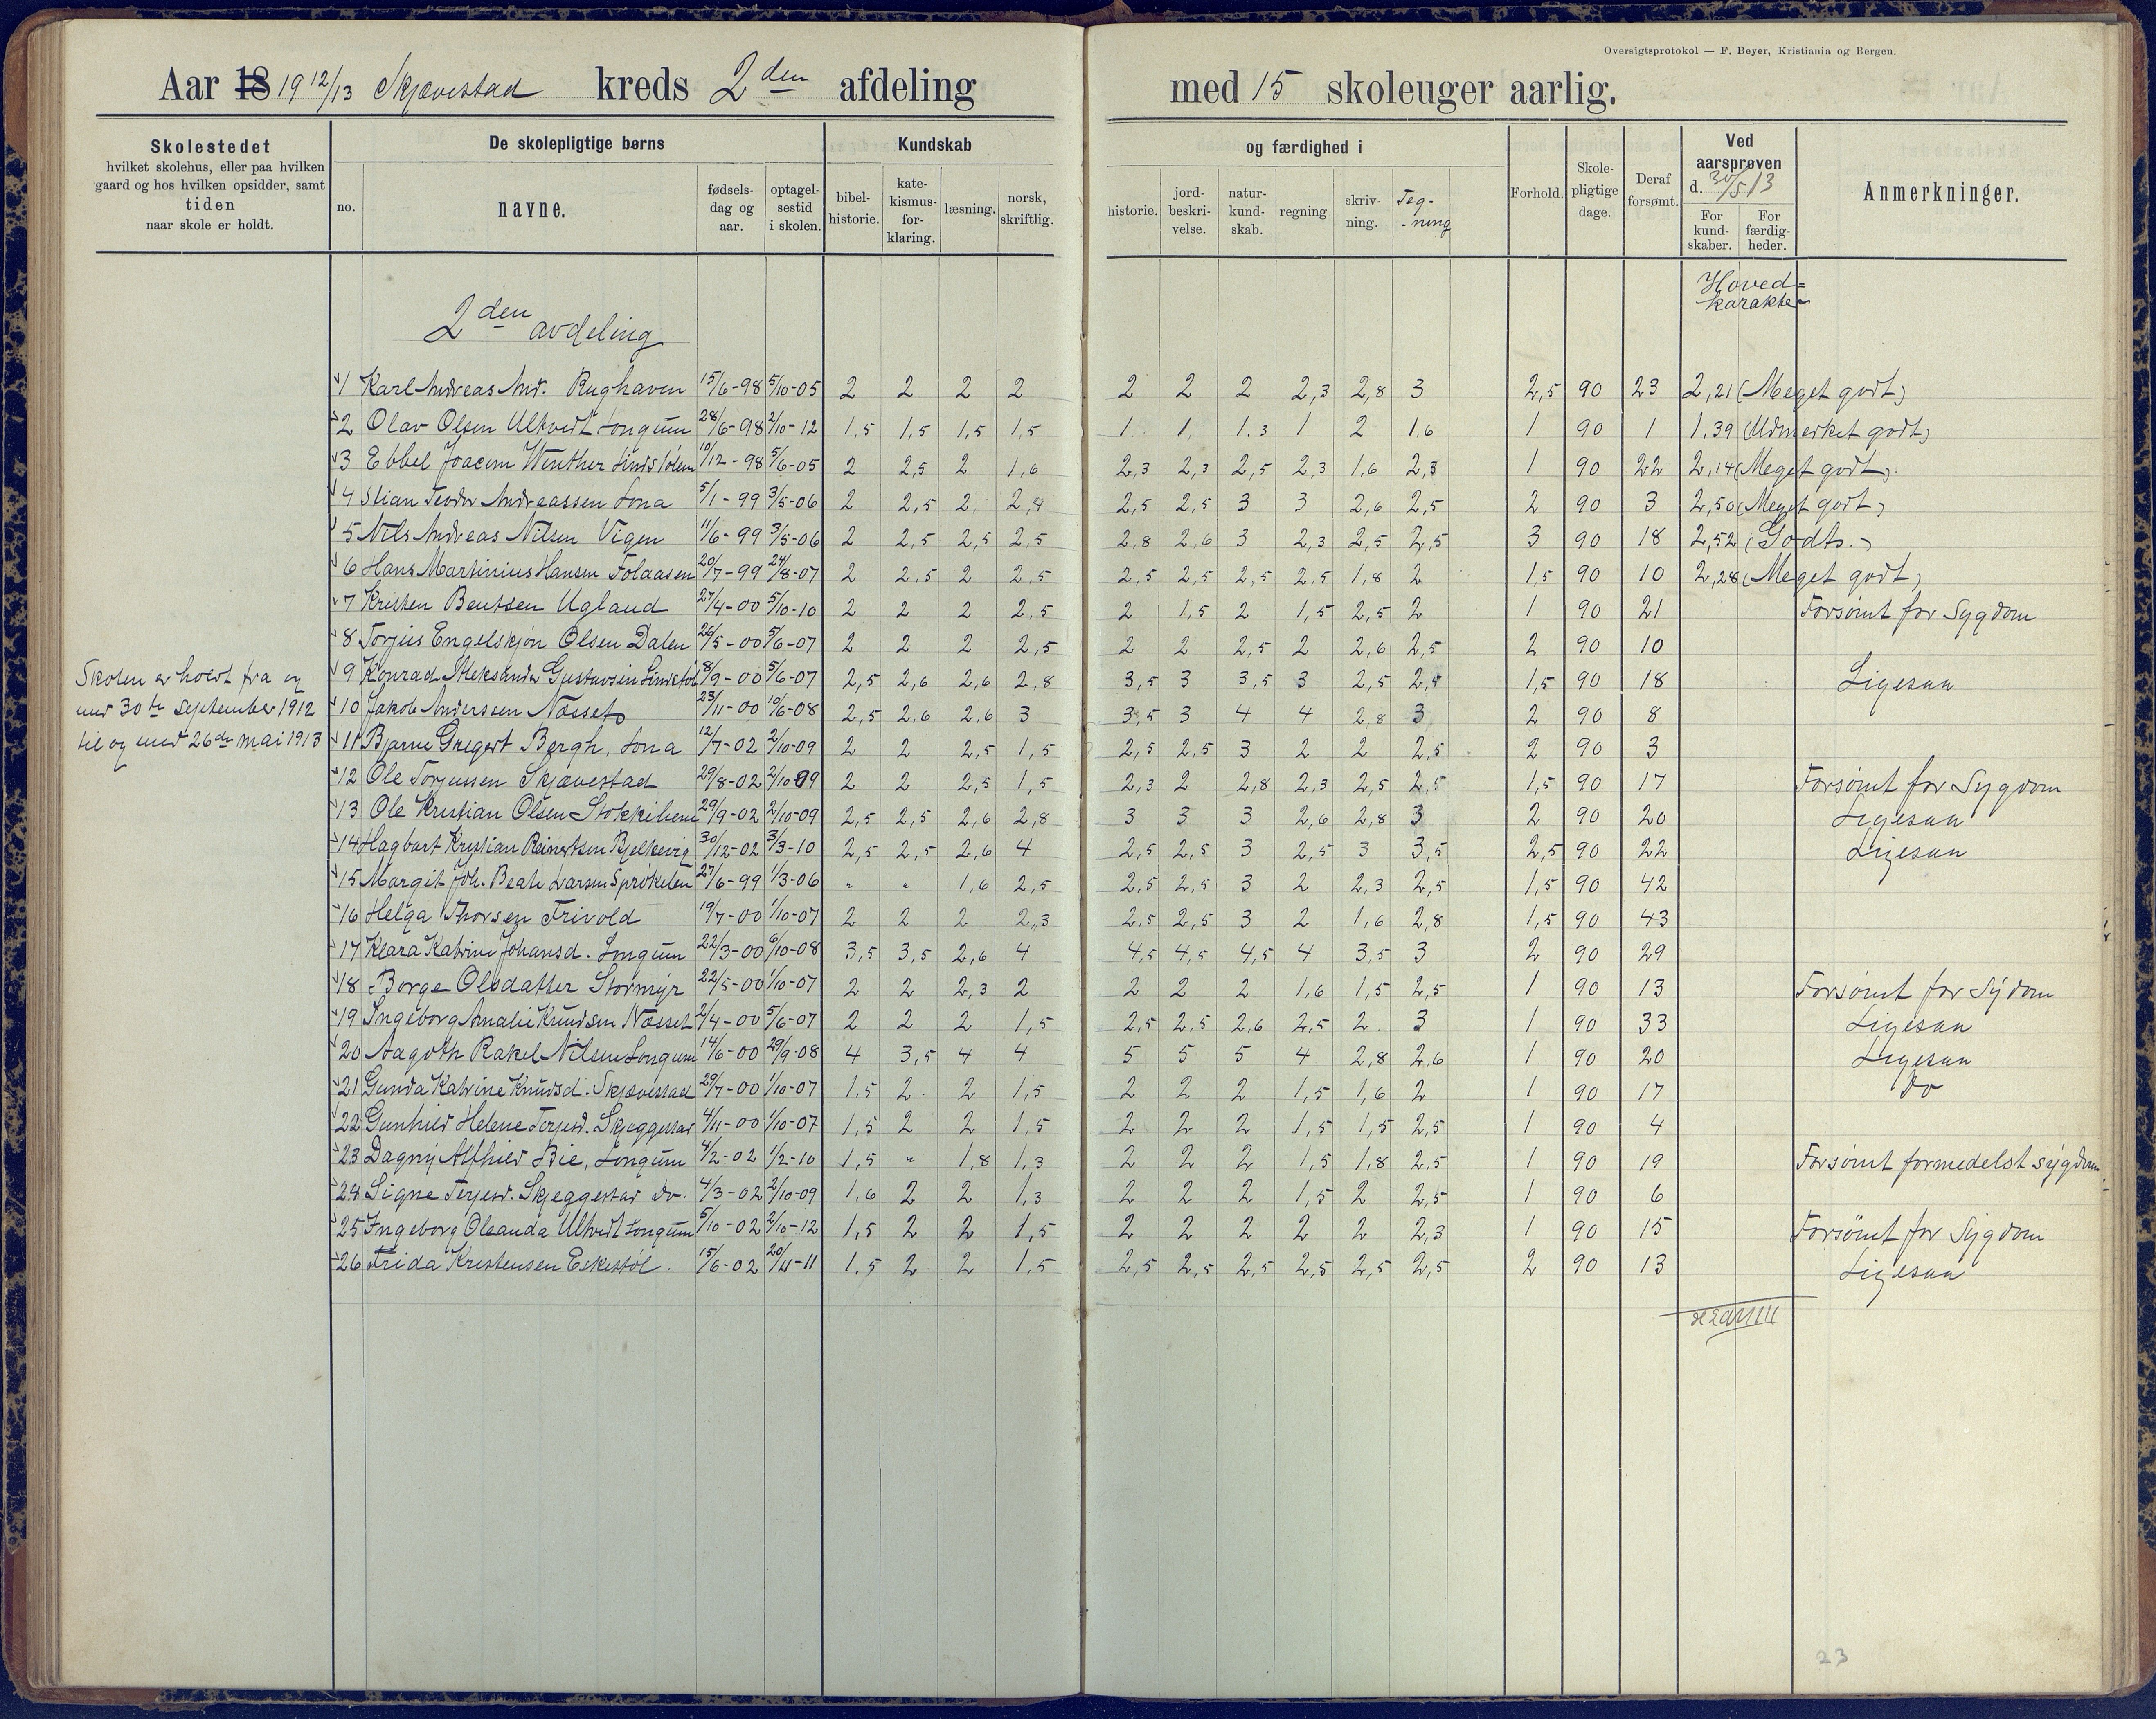 Oversigtsprotokol — F. Beyer, Kristiania og Bergen.
Aar 18 19 12/13 Skjævestad kreds 2den afdeling med 15 skoleuger aarlig.
Skolestedet hvilket skolehus, eller paa hvilken gaard og hos hvilken opsidder, samt tiden naar skole er holdt.
De skolepligtige børns
no. navne. fødsels-dag og aar. optagel-sestid i skolen.
Kundskab og færdighed i
bibel-historie. kate-kismus-for-klaring. læsning. norsk, skriftlig. historie. jord-beskri-velse. natur-kund-skab. regning skriv-ning. Teg-ning
Forhold. Skole-pligtige dage. Deraf forsømt.
Ved aarsprøven d. 30/5 13
For kund-skaber. For færdig-heder.
Anmerkninger.
Hoved=karakter
2den avdeling
1 Karl Andreas And. Rughaven 15/6-98 5/10-05 2 2 2 2 2 2 2 2,3 2,8 3 2,5 90 23 2,21 (Meget godt)
2 Olav Olsen Ultvedt Longum 28/6-98 2/10-12 1,5 1,5 1,5 1,5 1 1 1.3 1 2 1,6 1 90 1 1,39 (Udmerket godt)
3 Ebbel Joacim Winther 10/12-98 5/6-05 2 2,5 2 1,6 2,3 2,3 2,5 2,3 1,6 2,3 1 90 22 2,14 (Meget godt)
4 Stian Teodor Andreassen Lona 5/1-99 3/5-06 2 2,5 2 2,4 2,5 2,5 3 3 2,6 2,5 2 90 3 2,50 (Meget godt)
5 Nils Andreas Nilsen Vigen 11/6-99 3/5-06 2 2,5 2,5 2,5 2,8 2,6 3 2,3 2,5 2,5 3 90 18 2,52 (Godts.)
6 Hans Martinius Hansen Folaasen 20/7-99 24/8-07 2 2,5 2 2,5 2,5 2,5 2,5 2,5 1,8 2 1,5 90 10 2,28 (Meget godt)
7 Kristen Bentsen Ugland 27/4-00 5/10-10 2 2 2 2,5 2 1,5 2 1,5 2,5 2 1 90 21 Forsømt for Sygdom
8 Torjus Engelskjøn Olsen Dalen 26/5-00 5/6-07 2 2 2 2,5 2 2 2,5 2 2,6 2,5 2 90 10
9 Konrad Aleksander Gustavsen 8/9-00 5/6-07 2,5 2,6 2,6 2,8 3,5 3 3,5 3 2,5 2,5 1,5 90 18 Ligesaa
Skolen er holdt fra og
med 30te September 1912
til og med 26de mai 1913
10 Jakob Anderssen Næsset 23/11-00 10/6-08 2,5 2,6 2,6 3 3,5 3 4 4 2,8 3 2 90 8
11 Bjarne Gregert Bergh, Lona 12/7-02 2/10-09 2 2 2,5 1,5 2,5 2,5 3 2 2 2,5 2 90 3
12 Ole Torjussen Skjævestad 29/8-02 2/10 09 2 2 2,5 1,5 2,3 2 2,8 2,3 2,5 2,5 1,5 90 17 Forsømt for Sygdom
13 Ole Kristian Olsen 29/9-02 2/10-09 2,5 2,5 2,6 2,8 3 3 3 2,6 2,8 3 2 90 20 Ligesaa
14 Hagbart Kristian Reinertsen Bjelkevig 30/12-02 3/3-10 2,5 2,5 2,6 4 2,5 2,5 3 2,5 3 3,5 2,5 90 22 Ligesaa
15 Margit Joh. Beate Larsen Sprøkelen 27/6-99 1/3-06 " " 1,6 2,5 2,5 2,5 3 2 2,3 2,5 1,5 90 42
16 Helga Thorsen Trivold 19/7-00 1/10-07 2 2 2 2,3 2,5 2,5 3 2 1,6 2,8 1,5 90 43
17 Klara Katrine Johansd. Longum 22/3-00 6/10-08 3,5 3,5 2,6 4 4,5 4,5 4,5 4 3,5 3 2 90 29
18 Borge Olsdatter Stormyr 22/5-00 1/10-07 2 2 2,3 2 2 2 2 1,6 1,5 2,5 1 90 13 Forsømt for Sydom
19 Ingeborg Amalie Knudsen Næsset 2/4-00 5/6-07 2 2 2 1,5 2,5 2,5 2,6 2,5 2 3 1 90 33 Ligesaa
20 Aagoth Rakel Nilsen Longum 14/6-00 29/9-08 4 3,5 4 4 5 5 5 4 2,8 2,6 1 90 20 Ligesaa
21 Gunda Katrine Knudsd. Skjævestad 29/7-00 1/10-07 1,5 2 2 1,5 2 2 2 1,5 1,6 2 1 90 17 do
22 Gunhild Helene Terjesd. Skjeggestad 4/11-00 1/10-07 1,5 2 2 1,5 2 2 2 1,5 1,5 2,5 1 90 4
23 Dagny Alfhild Bie, Longum 4/2-02 1/2-10 1,5 " 1,8 1,3 2 2 2 1,5 1,8 2,5 1 90 19 Forsømt formedelst sygdom
24 Signe Terjesd. Skjeggestad do. 4/3-02 2/10-09 1,6 2 2 1,3 2 2 2 1,5 2 2,5 1 90 6
25 Ingeborg Oleanda Ultvedt Longum 5/10-02 2/10-12 1,5 2 2 1,5 2 2 2 2 2 2,3 1 90 15 Forsømt for Sygdom
26 Frida Kristensen Eskestøl. 15/6-02 20/11-11 1,5 2 2 1,5 2,5 2,5 2,5 2,5 2,5 2,5 2 90 13 Ligesaa
23